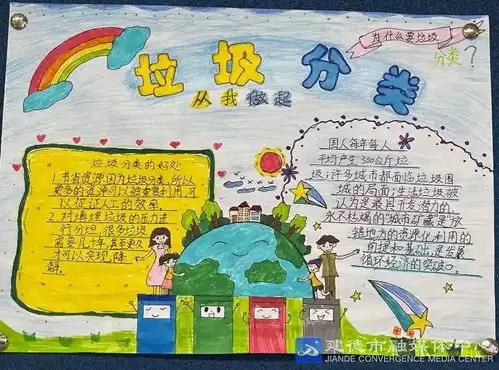 为什么要垃圾
分类？
垃圾分类
从我做起
垃圾分类的好处
1.节省资源因为垃圾分类,所以
更多的资源可以被重复利用,可
以促进人工的效率
2.对填埋垃圾的压力进
行分担,很多垃圾
需要几十年甚至更久
才可以实现降
解。
国人每年每人
平均产生300公斤垃
圾;许多城市都面临垃圾围
城的局面;生活垃圾被
认为是最具开发潜力的
永不枯竭的"城市矿藏"是
圾的资源化利用的
前提和基础,是发展
循环经济的突破口。
建德市融媒体中心
JIANDE CONVERGENCE MEDIA CENTER